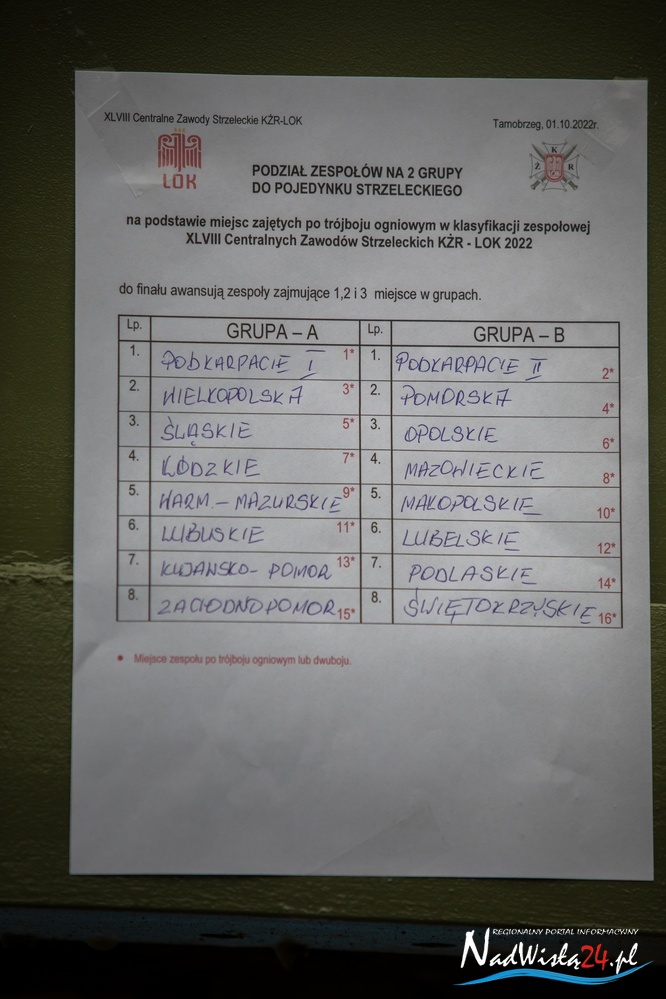 XLVIII Centralne Zawody Strzeleckie KŻR-LOK
Tarnobrzeg, 01.10.2022r.
LOK
K
Ż R
PODZIAŁ ZESPOŁÓW NA 2 GRUPY
DO POJEDYNKU STRZELECKIEGO
na podstawie miejsc zajętych po trójboju ogniowym w klasyfikacji zespołowej
XLVIII Centralnych Zawodów Strzeleckich KŻR - LOK 2022
do finału awansują zespoły zajmujące 1,2 i 3 miejsce w grupach.
Lp. GRUPA – A Lp. GRUPA – B
1. PODKARPACIE I 1* 1. PODKARPACIE II 2*
2. WIELKOPOLSKA 3* 2. POMORSKA 4*
3. ŚLĄSKIE 5* 3. OPOLSKIE 6*
4. ŁÓDZKIE 7* 4. MAZOWIECKIE 8*
5. WARM. – MAZURSKIE 9* 5. MAŁOPOLSKIE 10*
6. LUBUSKIE 11* 6. LUBELSKIE 12*
7. KUJAWSKO – POMOR 13* 7. PODLASKIE 14*
8. ZACHODNOPOMOR 15* 8. ŚWIĘTOKRZYSKIE 16*
• Miejsce zespołu po trójboju ogniowym lub dwuboju.
REGIONALNY PORTAL INFORMACYJNY
NadWisłą24.pl